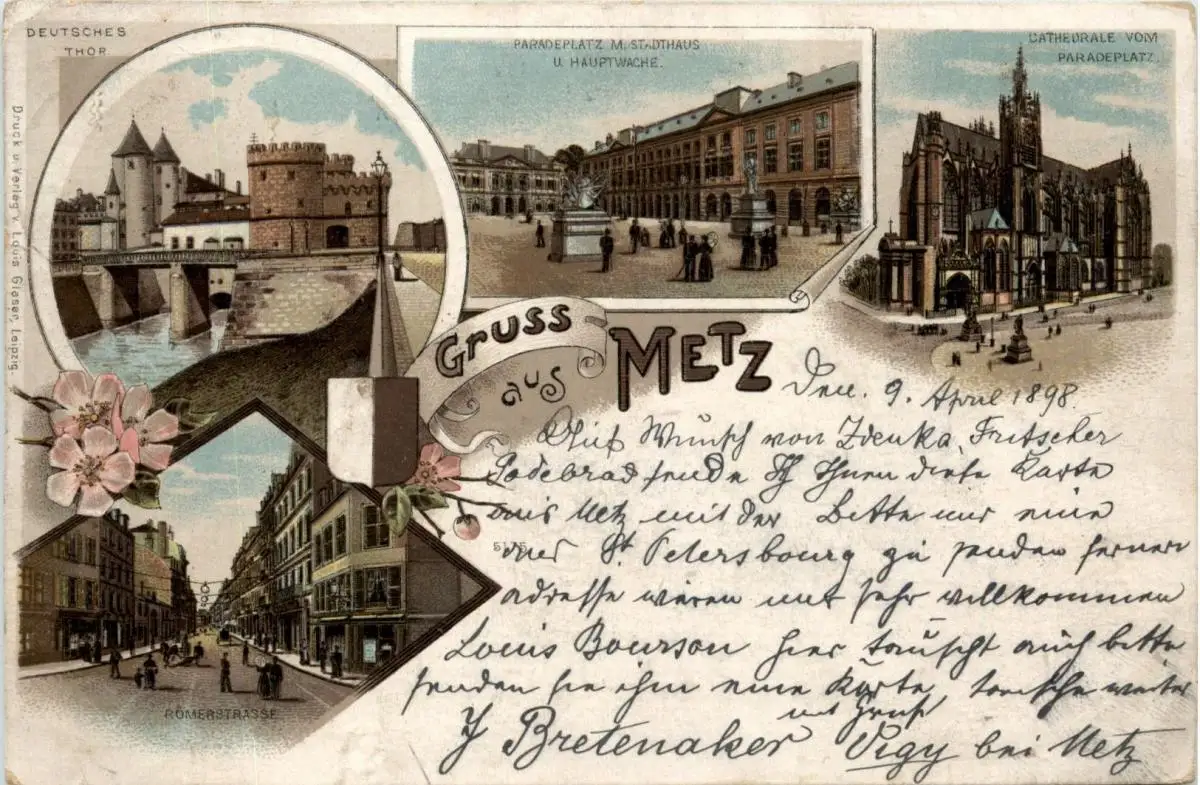 DEUTSCHES
THOR.
PARADEPLATZ M. STADTHAUS
U. HAUPTWACHE.
CATHEDRALE VOM
PARADEPLATZ.
Druck u. Verlag v. Louis Glaser, Leipzig.
Gruss
aus
METZ
Den. 9. April 1898.
Auf Wunsch von Zdenka Fritscher
Podebrad sende Ih Ihnen diese Karte
aus Metz mit der Bitte mir eine
aus St. Petersbourg zu senden fernere
5175
adresse wären mir sehr willkommen
Louis Bourson hier tauscht auch bitte
senden sie ihm eine Karte, tausche weiter
mit Gruß
J Bretenaker Vigy bei Metz
RÖMERSTRASSE